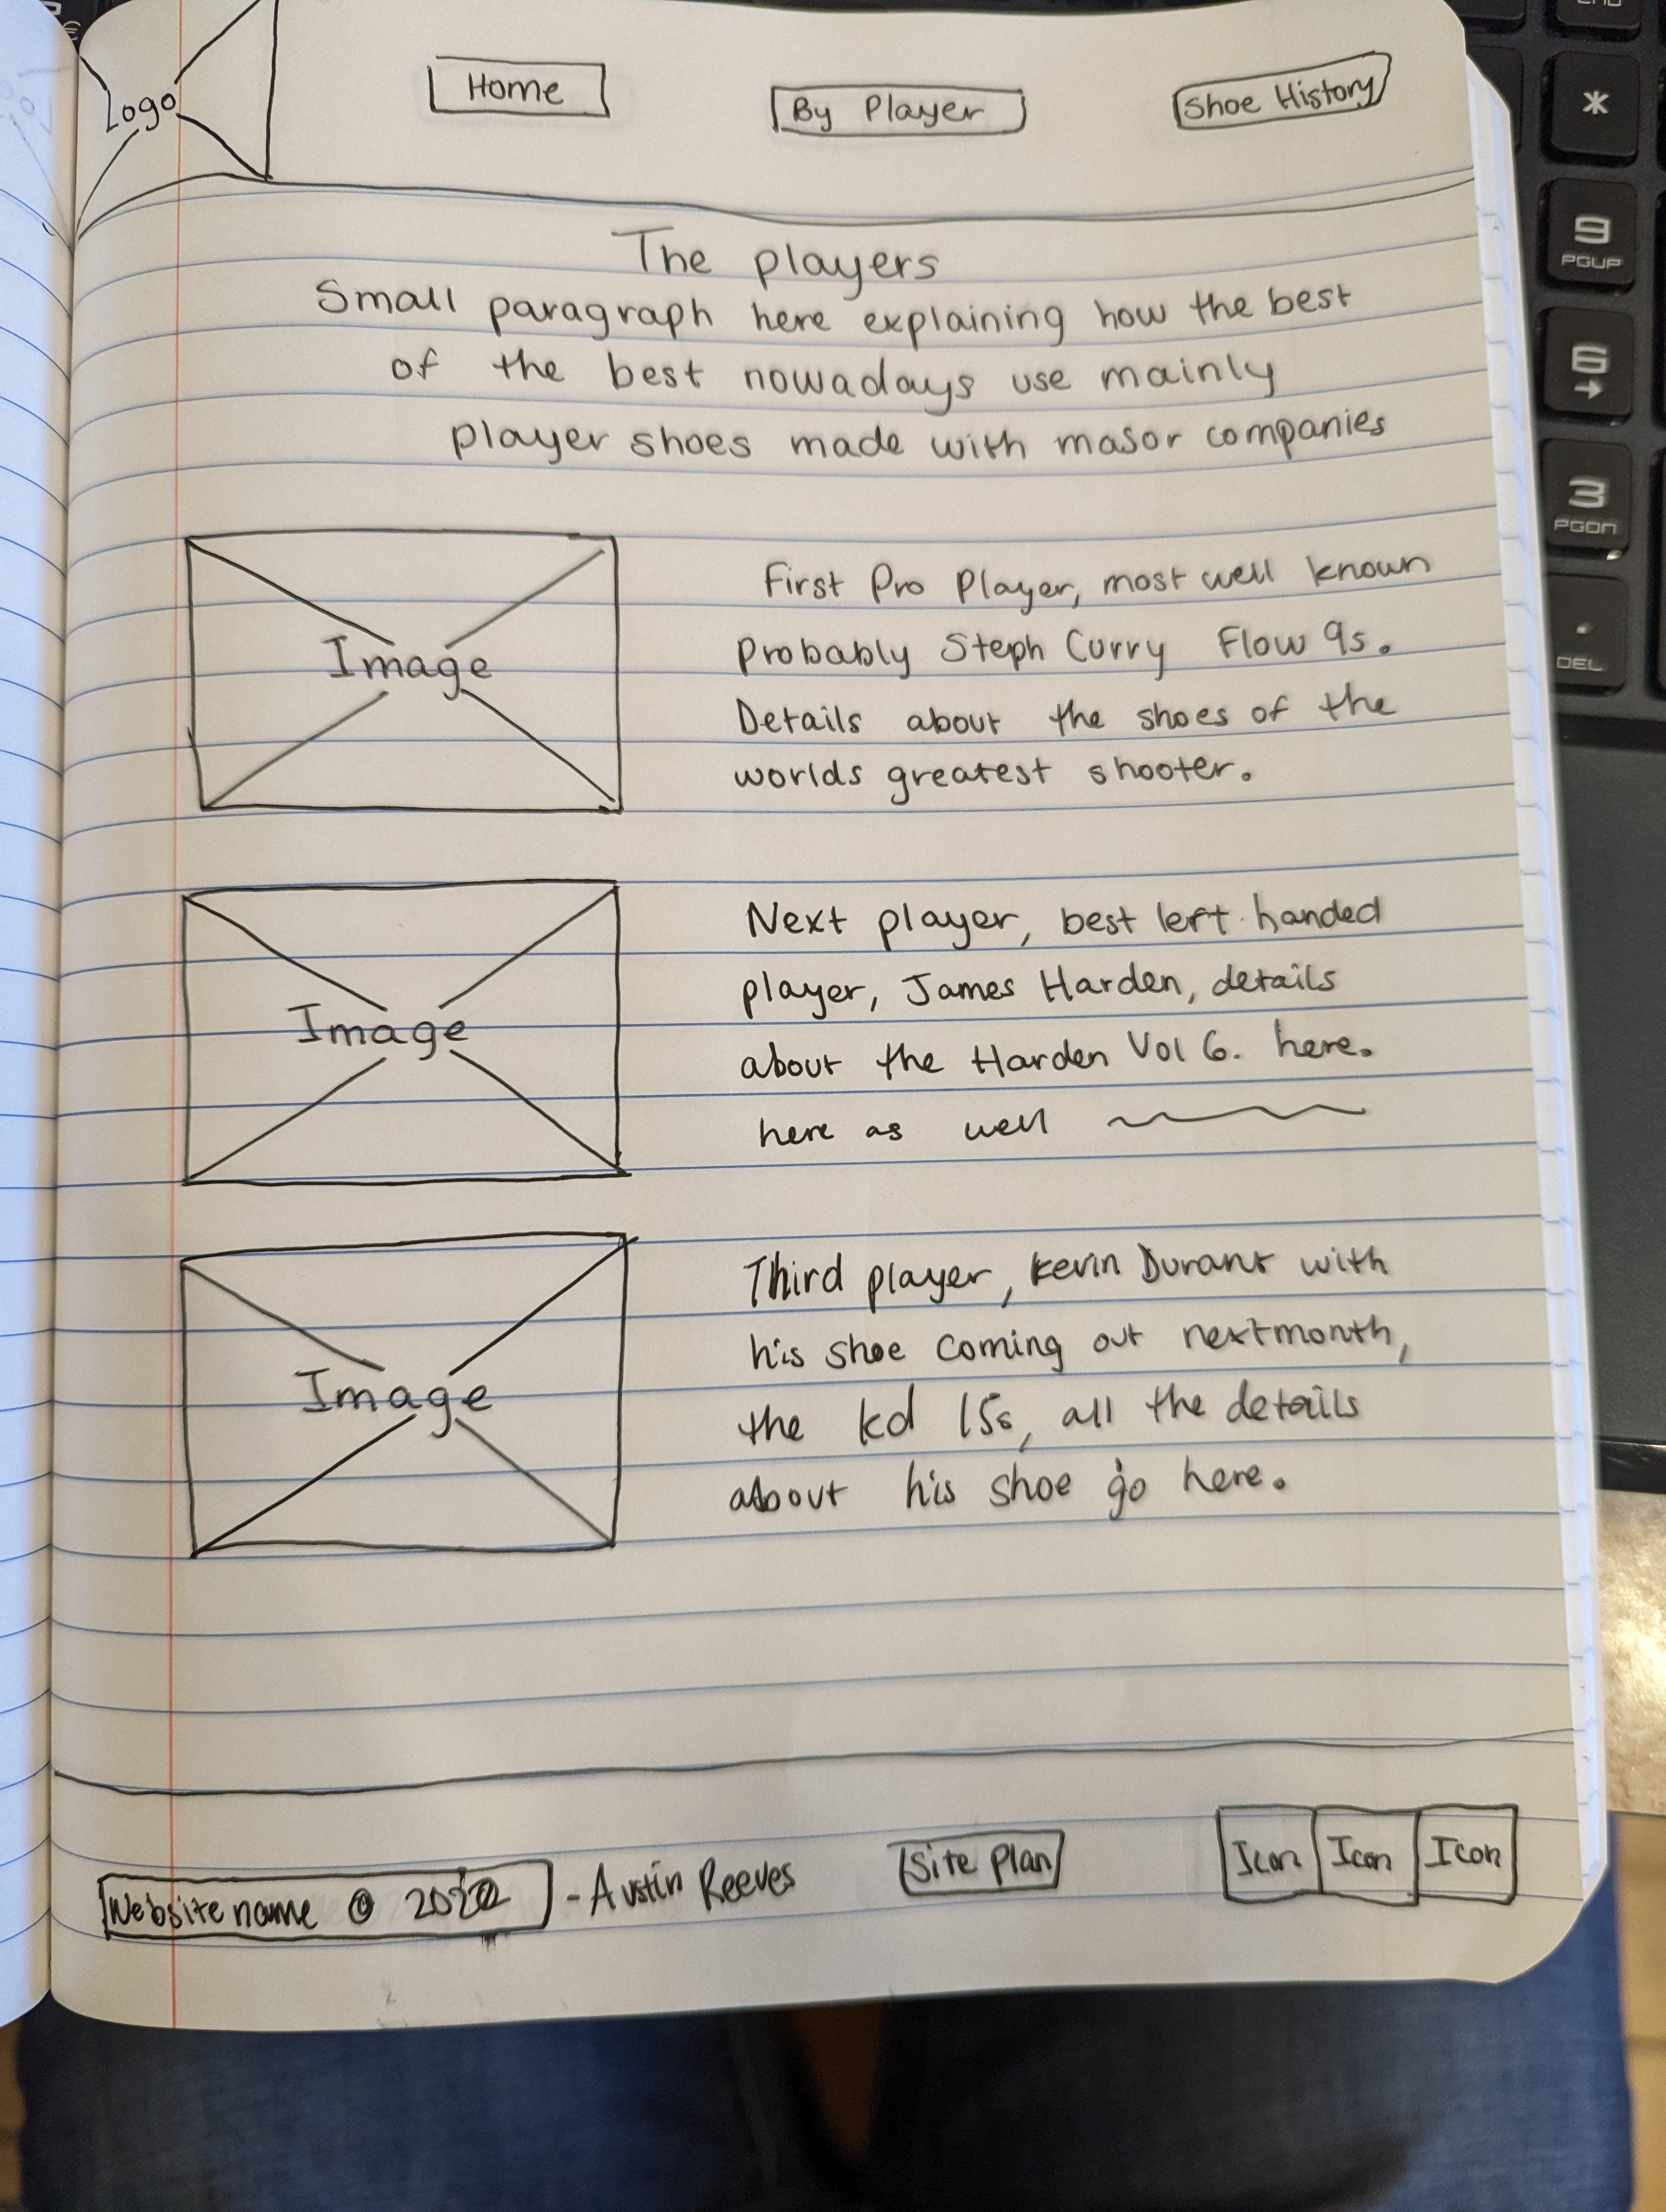 Logo
Home
By Player
Shoe History
The players
Small paragraph here explaining how the best
of the best nowadays use mainly
player shoes made with masor companies
Image
First Pro Player, most well known
probably Steph Curry Flow 9s.
Details about the shoes of the
worlds greatest shooter.
Image
Next player, best left handed
player, James Harden, details
about the Harden Vol 6. here.
here as well
Image
Third player, Kevin Durant with
his shoe coming out next month,
the kd 15s, all the details
about his shoe go here.
Website name @ 2022 - Austin Reeves
Site Plan
Icon Icon Icon
*
9
PGUP
6
→
3
PGDN
.
DEL